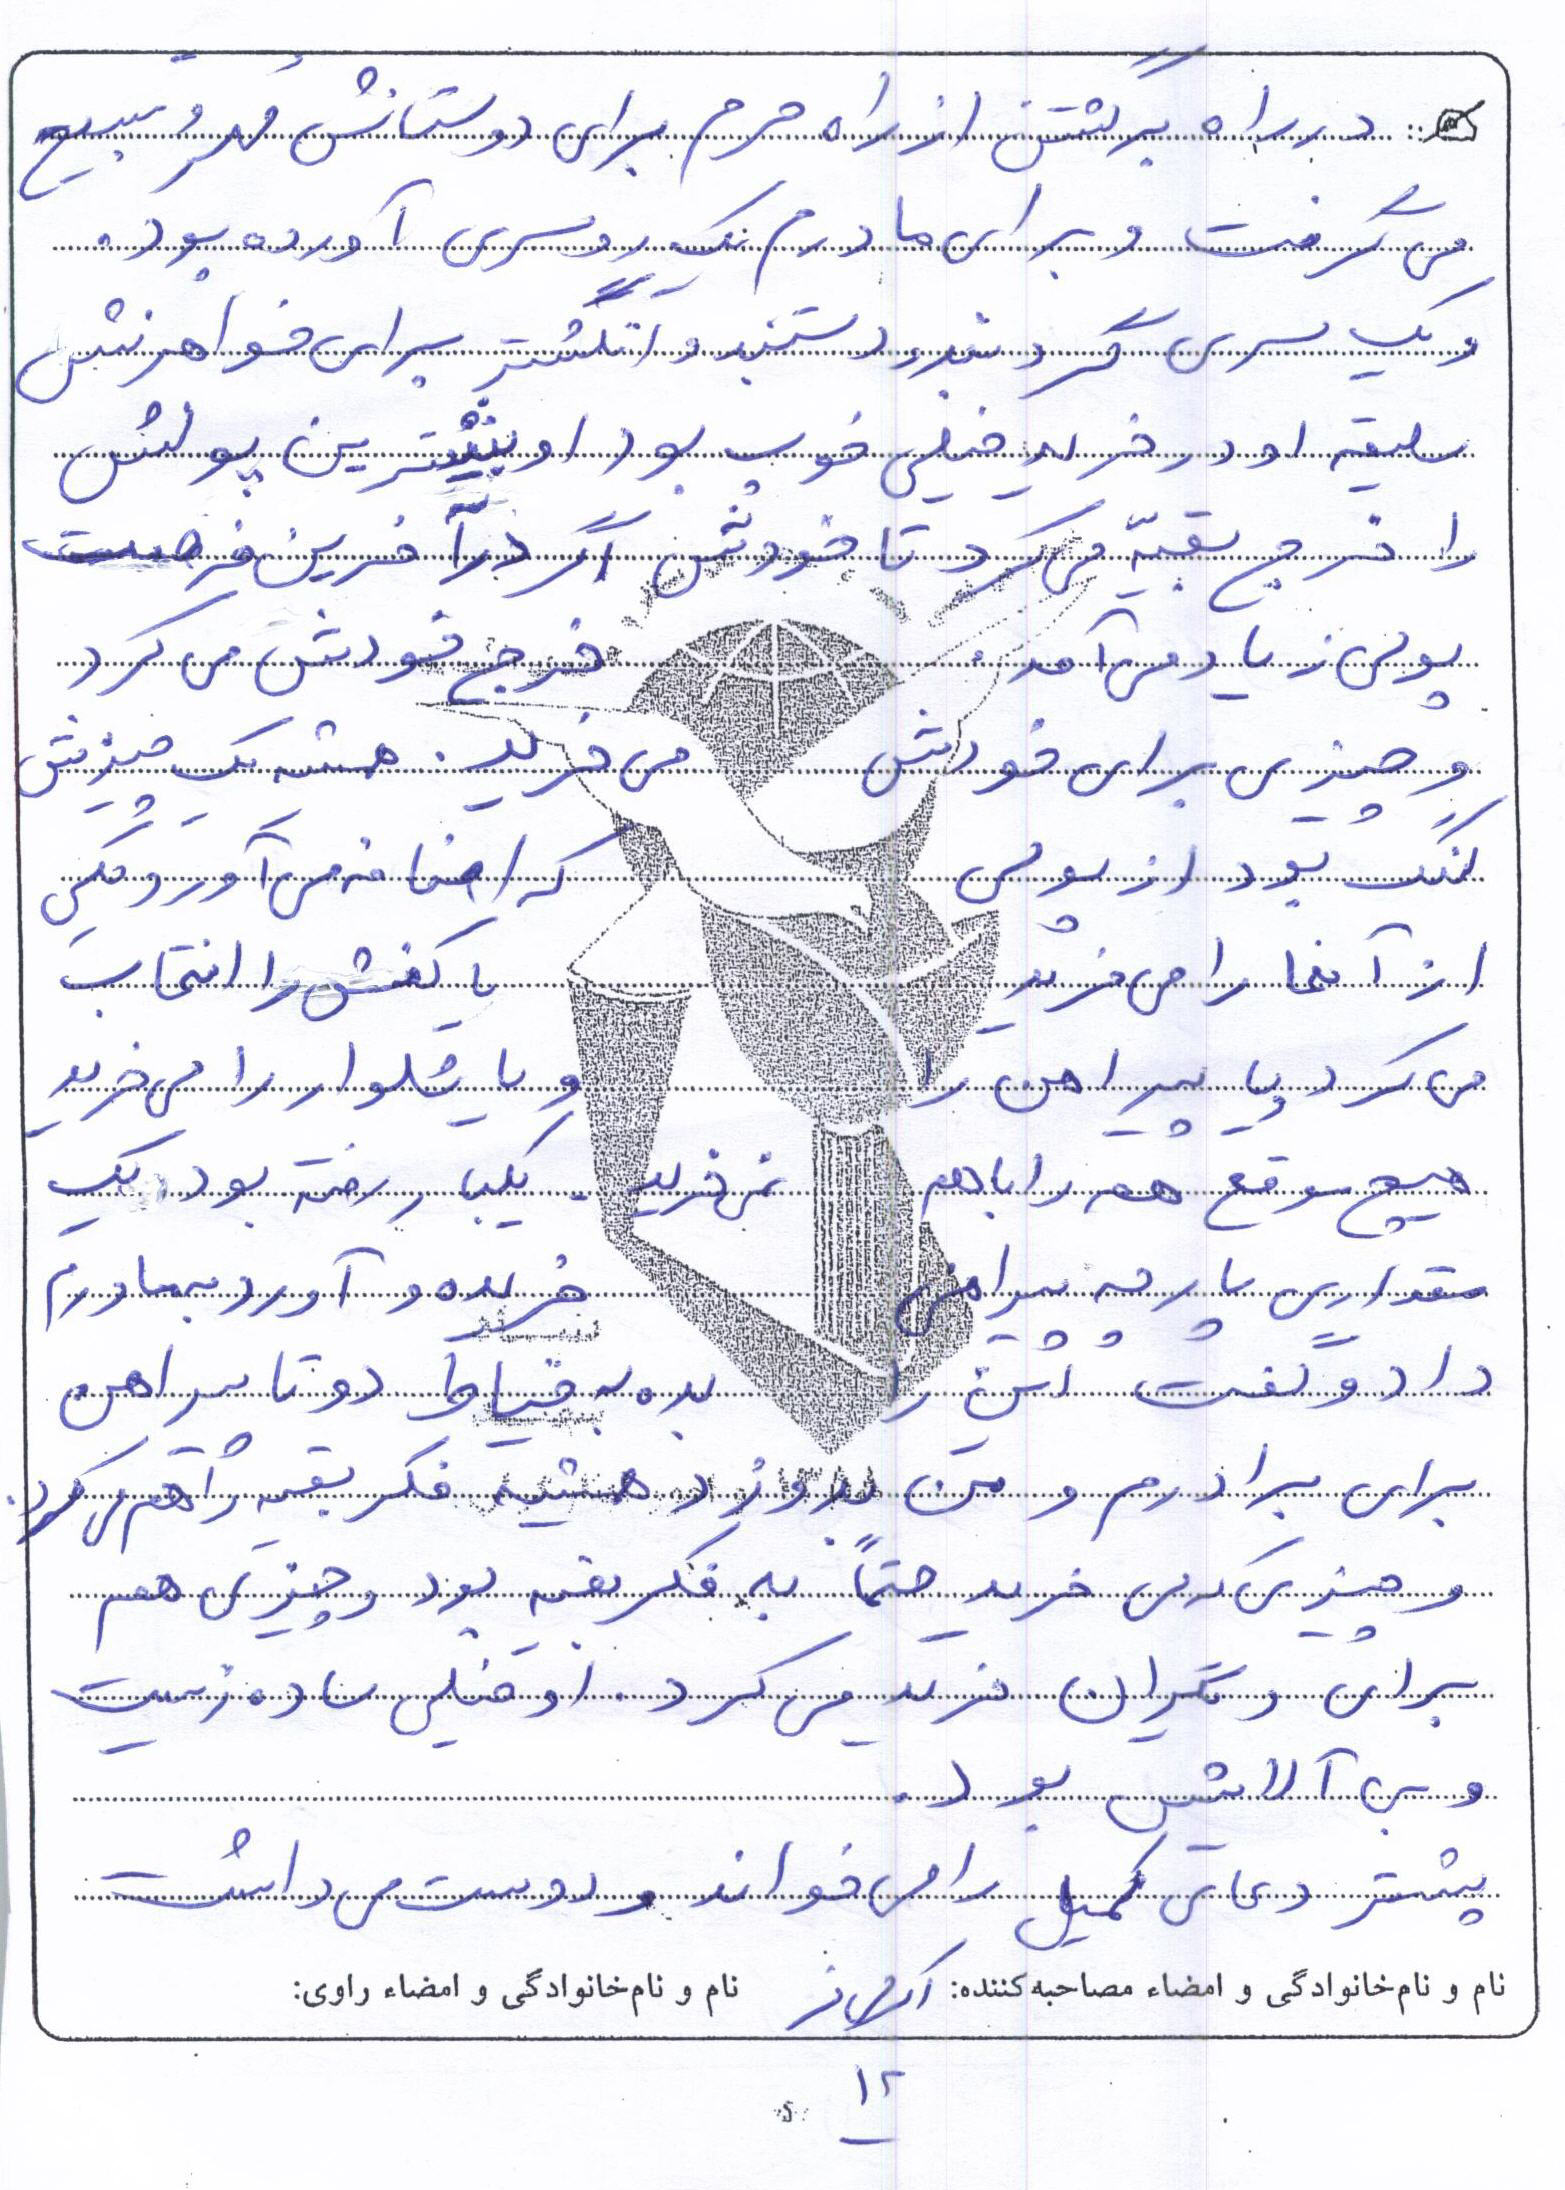 در راه برگشتن از راه حرم برای دوستانش مُهر و تسبیح
می گرفت و برای مادرم یک روسری آورده بود.
و یک سری گردنبند و دستبند و انگشتر برای خواهرنش
سلیقه او در خرید خیلی خوب بود او بیشترین پولش
را خرج بقیّه می کرد تا خودش اگر در آخرین فرصت
پولی زیاد می آمد. خرج خودش می کرد
و چیزی برای خودش می خرید. همیشه یک چیزش
لنگ بود از پولی که اضافه می آورد یکی
از آنها را می خرید یا کفش را انتخاب
می کرد یا پیراهن را و یا شلوار را می خرید
هیچ موقع همه را با هم نمی خرید. یکبار رفته بود یک
مقداری پارچه پیراهنی خریده و آورد به مادرم
داد و گفت این را بده به خیاط دو تا پیراهن
برای برادرم و من بدوزد همیشه فکر بقیه را هم می کرد.
و چیزی که می خرید حتماً به فکر بقیه بود و چیزی هم
برای دیگران خرید می کرد. او خیلی ساده زیست
و بی آلایش بود.
بیشتر دعای کمیل را می خواند و دوست می داشت
نام و نام‌خانوادگی و امضاء مصاحبه‌کننده: نام و نام‌خانوادگی و امضاء راوی:
۱۲